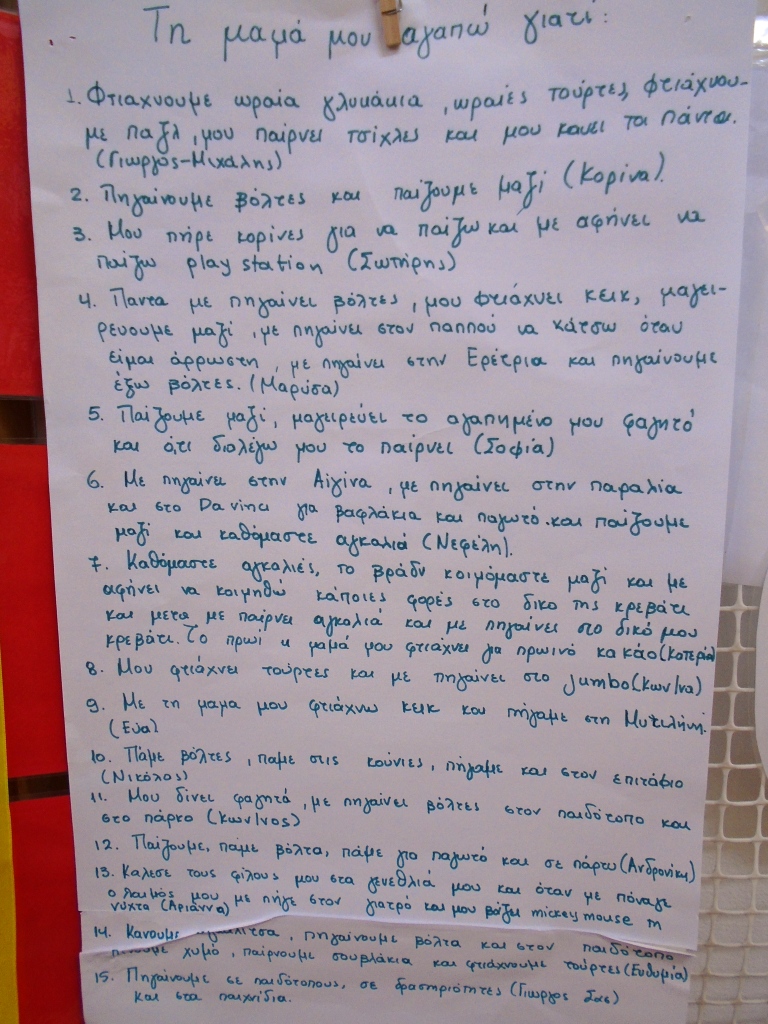 Τη μαμά μου αγαπώ γιατί:
1. Φτιαχνουμε ωραία γλυκάκια, ωραίες τούρτες, φτιάχνου-
με παζλ, μου παίρνει τσίχλες και μου κανει τα πάντα.
(Γιωργος-Μιχάλης)
2. Πηγαίνουμε βόλτες και παίζουμε μαζί (Κορίνα).
3. Μου πήρε κορίνες για να παίζω και με αφήνει να
παίζω play station (Σωτήρης)
4. Παντα με πηγαίνει βόλτες, μου φτιάχνει κεικ, μαγει-
ρεύουμε μαζί, με πηγαίνει στον παππού να κάτσω όταν
είμαι άρρωστη, με πηγαίνει στην Ερέτρια και πηγαίνουμε
έξω βόλτες. (Μαρύσα)
5. Παίζουμε μαζί, μαγειρεύει το αγαπημένο μου φαγητό
και ό,τι διαλέγω μου το παίρνει (Σοφία)
6. Με πηγαίνει στην Αίγινα, με πηγαίνει στην παραλία
και στο Da vinci για βαφλάκια και παγωτό. και παίζουμε
μαζί και καθόμαστε αγκαλιά (Νεφέλη).
7. Καθόμαστε αγκαλιές, το βράδυ κοιμόμαστε μαζί και με
αφήνει να κοιμηθώ κάποιες φορές στο δικο της κρεβάτι
και μετα με παίρνει αγκαλιά και με πηγαίνει στο δικό μου
κρεβάτι. Το πρωί η μαμά μου φτιάχνει για πρωινό κακάο (Κατερίνα)
8. Μου φτιάχνει τούρτες και με πηγαίνει στο jumbo (Κων/να)
9. Με τη μαμα μου φτιάχνω κεικ και πήγαμε στη Μυτιλήνη.
(Εύα)
10. Πάμε βόλτες, παμε στις κούνιες, πήγαμε και στον επιτάφιο
(Νικόλας)
11. Μου δίνει φαγητά, με πηγαίνει βόλτες στον παιδότοπο και
στο πάρκο (Κων/νος)
12. Παίζουμε, πάμε βόλτα, πάμε για παγωτό και σε πάρτυ (Ανδρονίκη)
13. Καλεσε τους φίλους μου στα γενεθλιά μου και όταν με πόναγε
ο λαιμός μου με πήγε στον γιατρό και μου βάζει mickey mouse τη
νύχτα (Αριάννα)
14. Κανουμε αγκαλίτσα, πηγαίνουμε βόλτα και στον παιδότοπο
πίνουμε χυμό, παίρνουμε σουβλάκια και φτιάχνουμε τούρτες (Ευθυμία)
15. Πηγαίνουμε σε παιδότοπους, σε δραστηριότητες (Γιωργος)
και στα παιχνίδια.